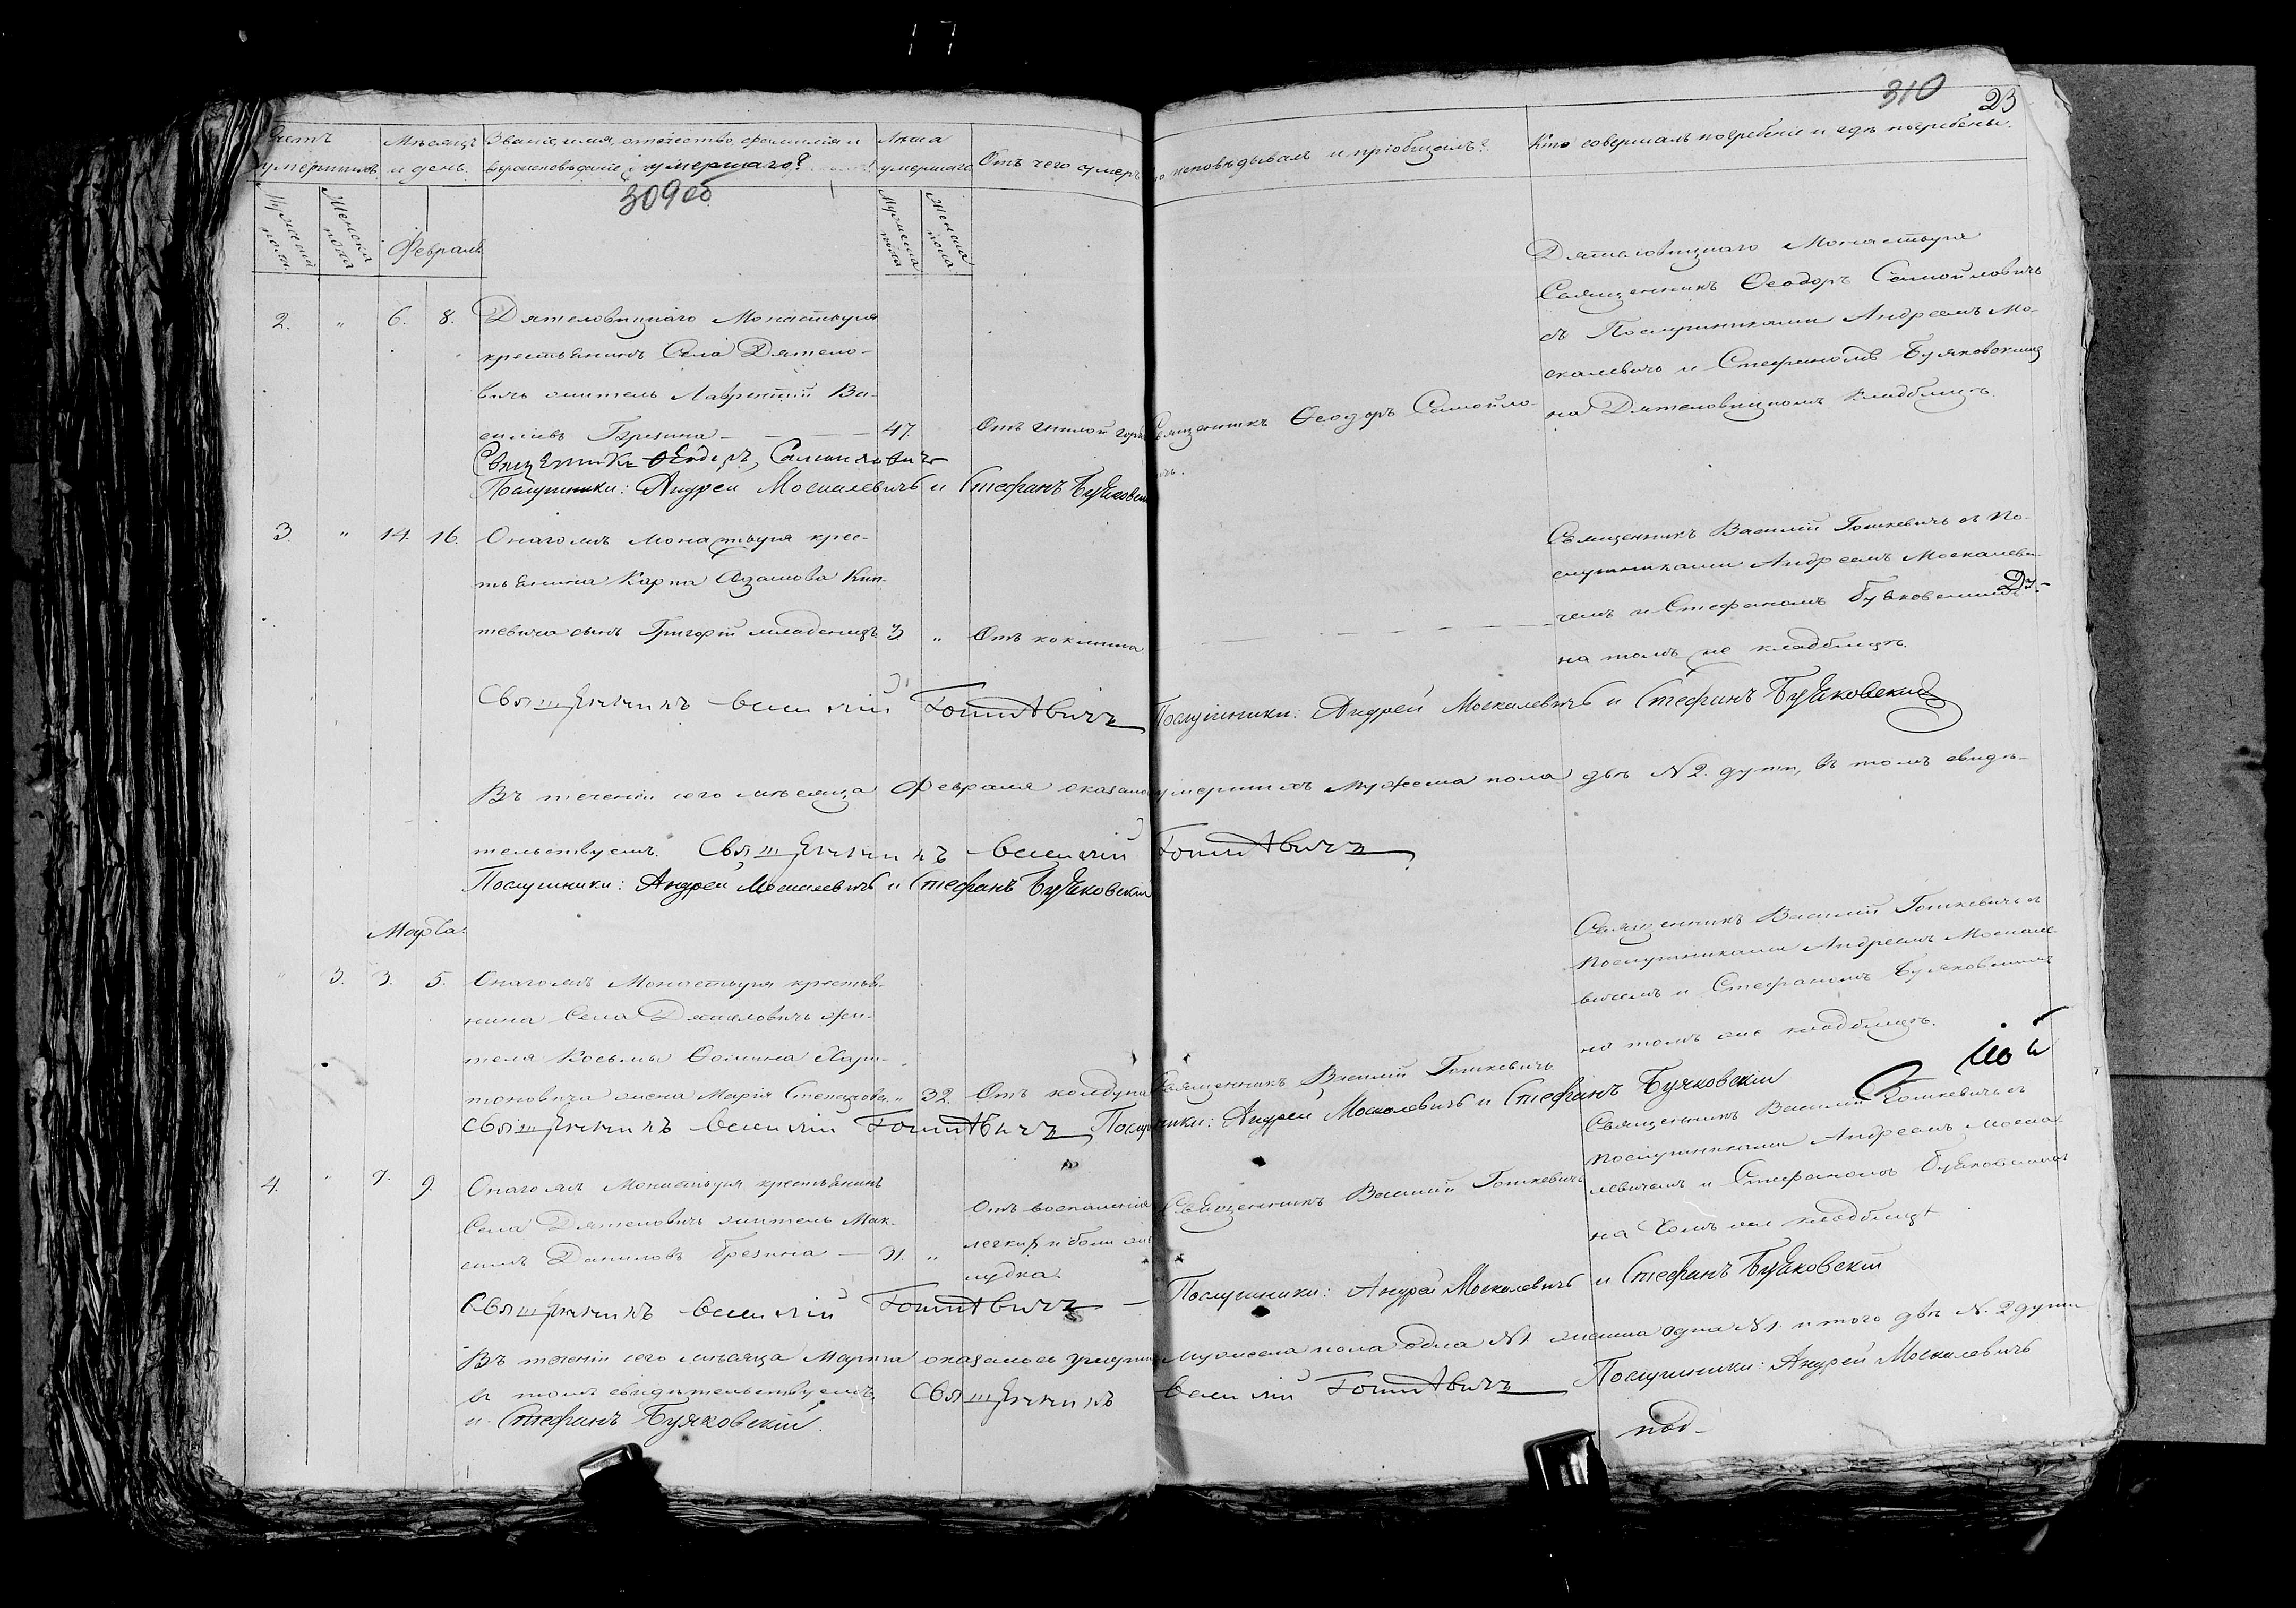 310
23
Счетъ умершихъ
Мѣсяцъ и день.
Званіе, имя, отечество, фамилія и
вѣроисповѣданіе умершаго?
Лѣта умершаго
Отъ чего умеръ
исповѣдывалъ и пріобщалъ?
Кто совершалъ погребеніе и гдѣ погребены.
309 об
Мужеска пола.
Женска пола
Февраль
Мужеска пола
Женска пола
2. " 6. 8. Дятеловицкаго Монастыря
крестьянинъ Села Дятело-
вичъ житель Лаврентій Ва-
силіевъ Брезина — 47. Отъ гнилой
Священникъ Ѳеодоръ Самойло-
вичъ.
Дятеловицкаго Монастыря
Священникъ Ѳеодоръ Самойловичъ
съ Послушниками Андреемъ Мо-
скалевичъ и Стефаномъ Буяковскимъ
на Дятеловицкомъ Кладбищѣ.
Священникъ Ѳеодоръ Самойловичъ
Послушники: Андрей Москалевичъ и Стефанъ Буяковскій
3. " 14. 16. Онагожъ Монастыря крес-
тьянина Карпа Адамова
тевича сынъ Григорій младенецъ 3 " Отъ коклюша
Священникъ Василій Гошкевичъ съ По-
слушниками Андреемъ Москалеви-
чемъ и Стефаномъ Буяковскимъ
на томъ же кладбищѣ.
Священникъ Василій Гошкевичъ Послушники: Андрей Москалевичъ и Стефанъ Буяковскій
Въ теченіи сего мѣсяца Февраля оказалось умершихъ Мужеска пола двѣ N 2. души, въ томъ свидѣ-
тельствуемъ. Священникъ Василій Гошкевичъ
Послушники: Андрей Москалевичъ и Стефанъ Буяковскій
Марта.
" 3. 3. 5. Онагожъ Монастыря крестья-
нина Села Дятеловичъ жи-
теля Косьмы Ѳомина Хари-
тоновича жена Марія Степанова " 32. Отъ колдуна
Священникъ Василій Гошкевичъ
Священникъ Василій Гошкевичъ съ
Послушниками Андреемъ Москале-
вичемъ и Стефаномъ Буяковскимъ
на томъ же кладбищѣ.
Священникъ Василій Гошкевичъ Послушники: Андрей Москалевичъ и Стефанъ Буяковскій
4. " 7. 9. Онагожъ Монастыря крестьянинъ
Села Дятеловичъ житель Мак-
симъ Даниловъ Брезина — 31. "
Отъ воспаленія
легкихъ и боли же-
лудка.
Священникъ Василій Гошкевичъ
Священникъ Василій Гошкевичъ съ
Послушниками Андреемъ Моска-
левичемъ и Стефаномъ Буяковскимъ
на томъ же кладбищѣ
Священникъ Василій Гошкевичъ — Послушники: Андрей Москалевичъ и Стефанъ Буяковскій
Въ теченіи сего мѣсяца Марта оказалось умершихъ мужеска пола одна N 1. женска одна N 1. итого двѣ N. 2 души
въ томъ свидѣтельствуемъ. Священникъ Василій Гошкевичъ Послушники: Андрей Москалевичъ
и Стефанъ Буяковскій.